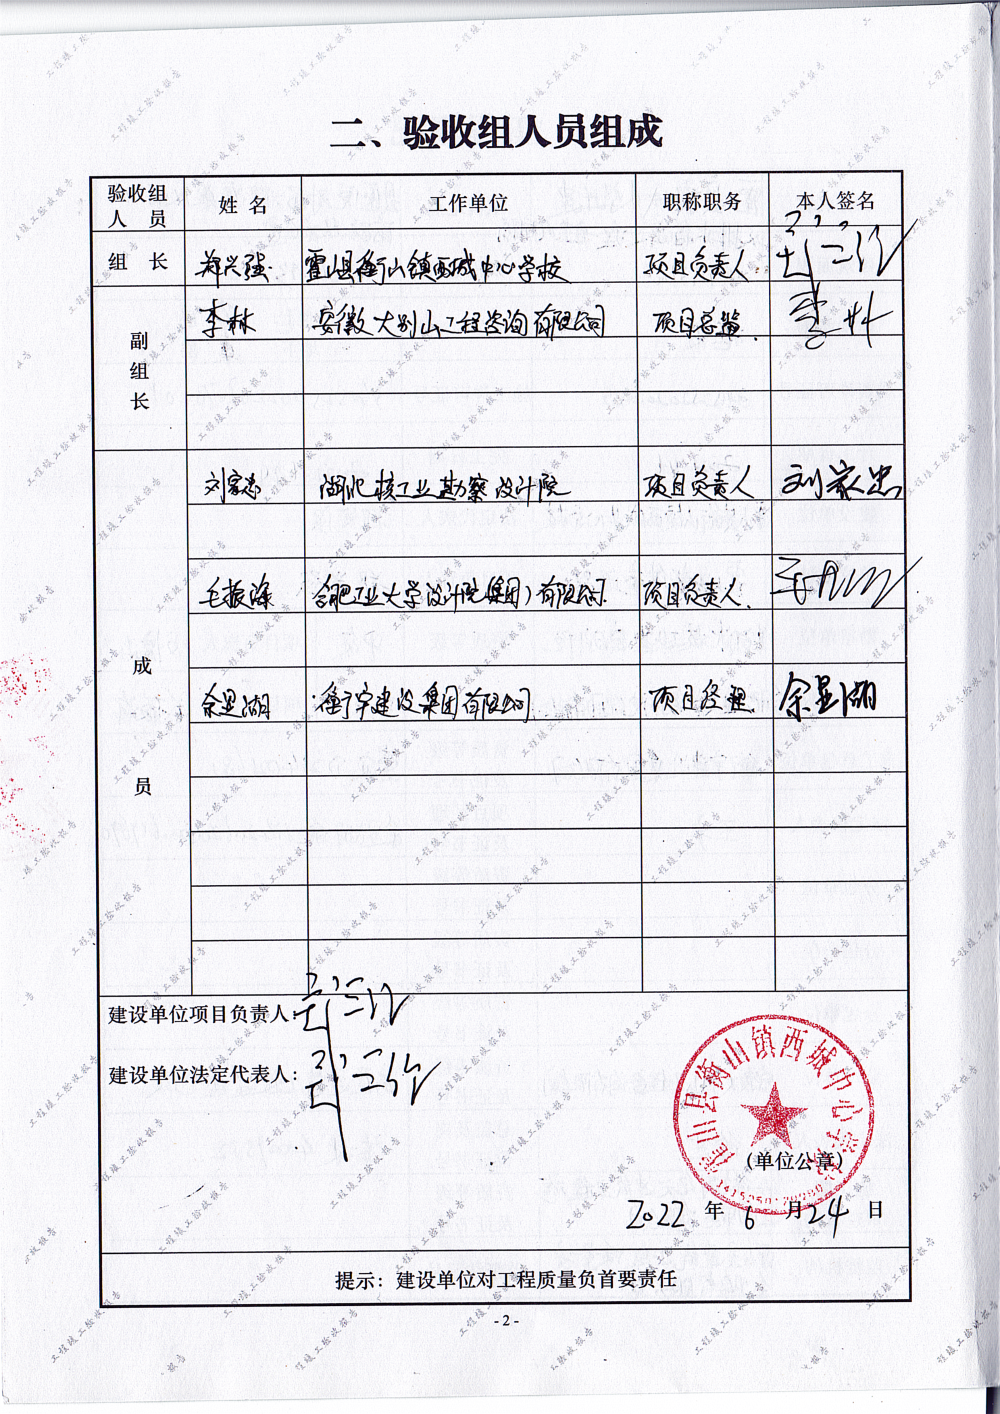 二、验收组人员组成
验收组人 员 姓 名 工作单位 职称职务 本人签名
组 长 郑兴强 霍山县衡山镇西城中心学校 项目负责人
副组长 李林 安徽大别山工程咨询有限公司 项目总监 李林
成员 刘家忠 湖北核工业勘察设计院 项目负责人 刘家忠
毛振涤 合肥工业大学设计院(集团)有限公司 项目负责人
余显湖 衡宇建设集团有限公司 项目经理 余显湖
建设单位项目负责人:
建设单位法定代表人:
霍山县衡山镇西城中心学校
(单位公章)
2022 年 6 月 24 日
提示：建设单位对工程质量负首要责任
- 2 -
工程竣工验收报告